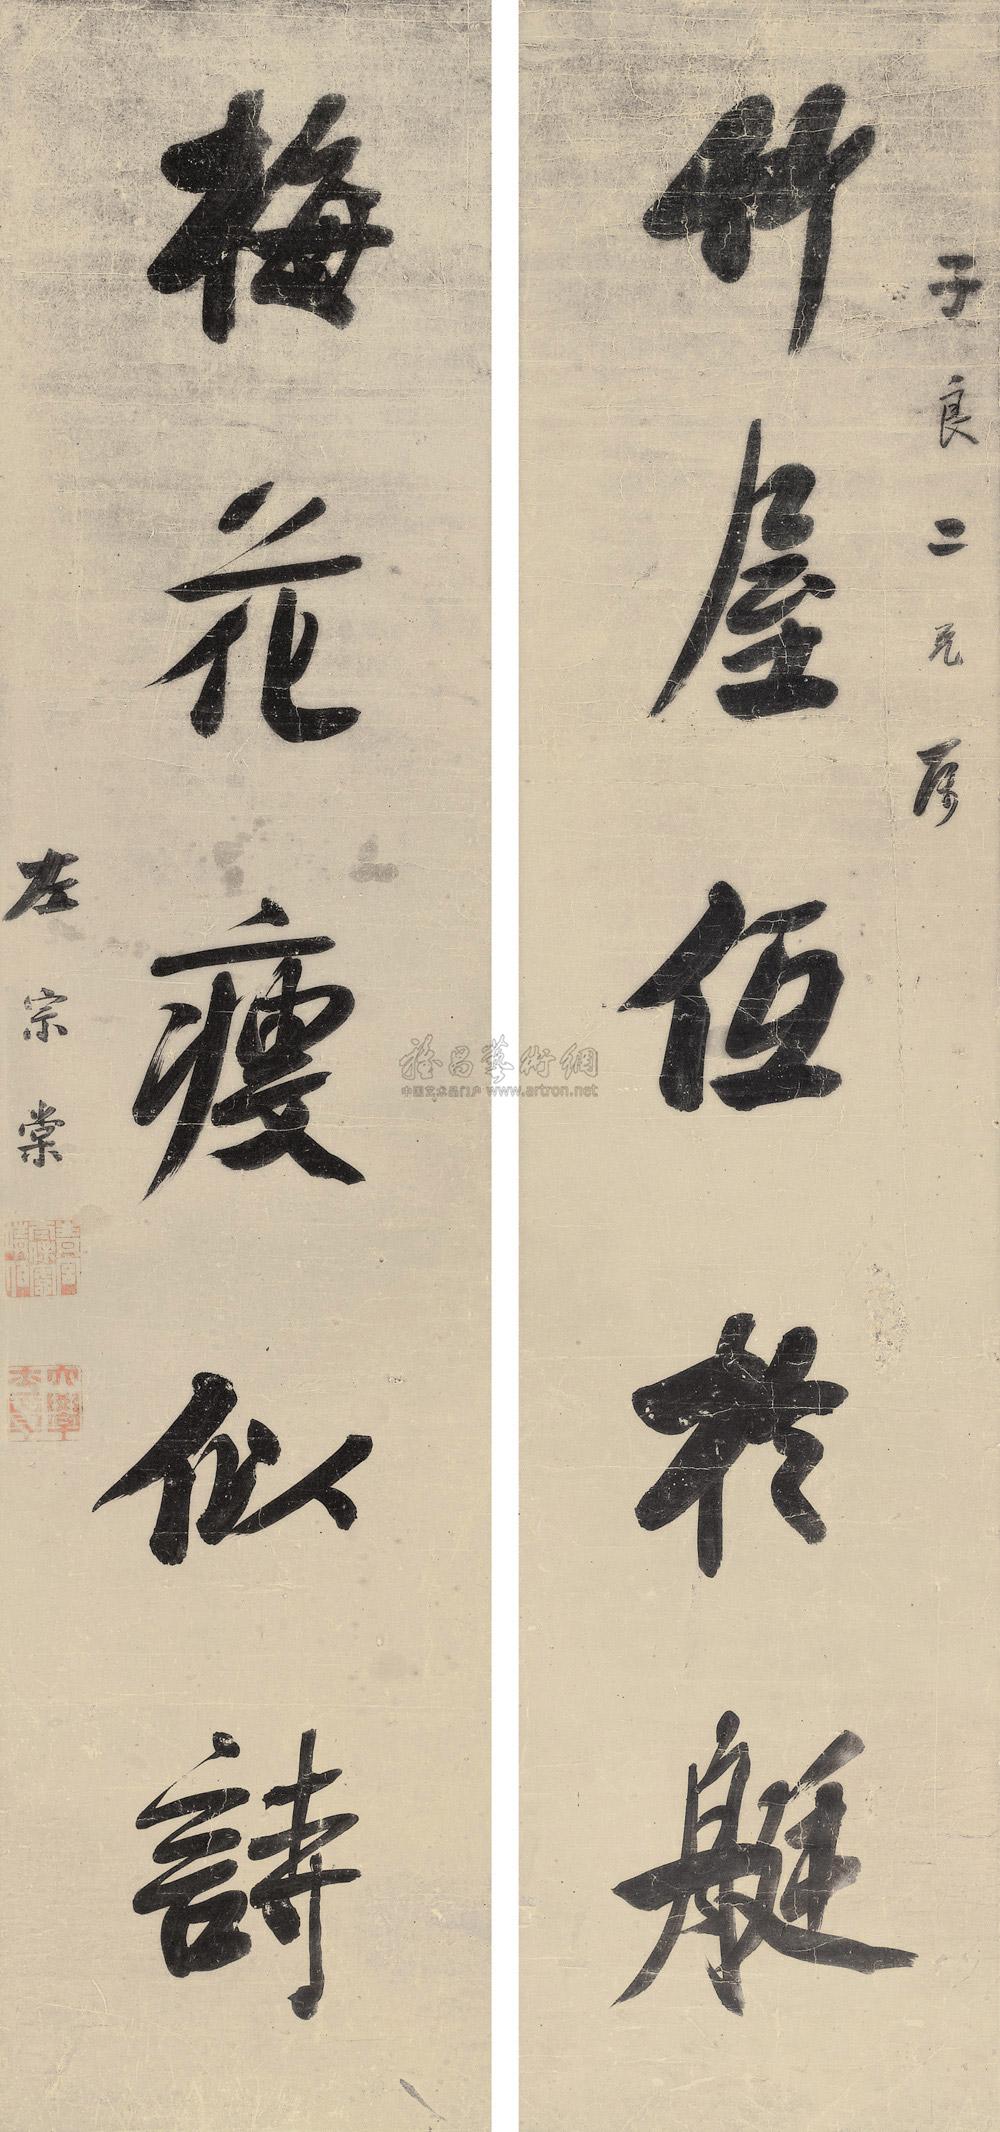 子良二兄屬
竹屋低於艇
梅花瘦似詩
左宗棠
雅昌藝術網
中国艺术品门户 www.artron.net